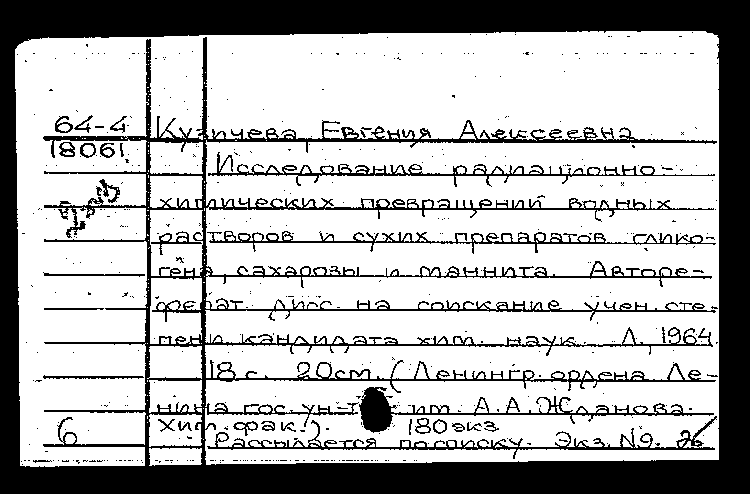 64-4
18061
Кузичева, Евгения Алексеевна
Исследование радиационно-
химических превращений водных
растворов и сухих препаратов глико-
гена, сахарозы и маннита. Авторе-
ферат дисс. на соискание учен. сте-
пени кандидата хим. наук. Л., 1964
18 с. 20см. (Ленингр. ордена Ле-
нина гос. ун-т им. А.А. Жданова.
Хим. фак.). 180 экз
6 Рассылается по списку. Экз. №